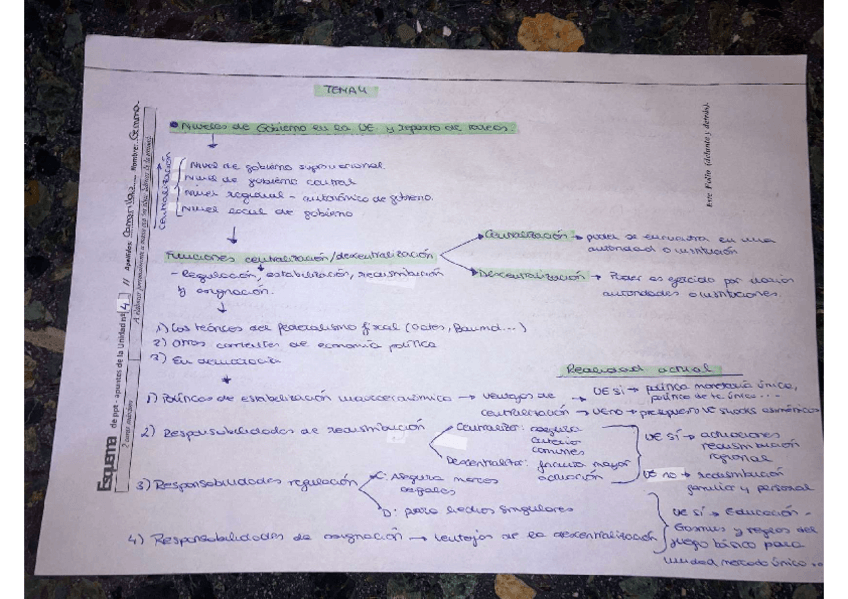 TEMA 4
• Niveles de Gobierno en la UE y reparto de tareas.
Centralización
Nivel de gobierno supranacional
Nivel de gobierno central
Nivel regional - autonómico de gobierno.
Nivel local de gobierno
Funciones centralización/descentralización
Centralización: poder se encuentra en una
autoridad o institución
Descentralización → Poder es ejercido por varias
autoridades o instituciones.
- Regulación, estabilización, redistribución
y asignación.
1) Los teóricos del federalismo fiscal (Oates, Baumol...)
2) Otras corrientes de economía política
3) En democracia
Realidad actual
1) Políticas de estabilización macroeconómica → ventajas de
centralización
UE sí → política monetaria única,
política de tc única...
UE no → presupuesto VS shocks asimétricos
2) Responsabilidades de redistribución
Centralizar: asegura
criterios
comunes
Descentralizar: permite mayor
actuación
UE sí → actuaciones
redistribución
regional
UE no → redistribución
familiar y personal
3) Responsabilidades regulación
C: Asegura marcos
legales
D: para hechos singulares
4) Responsabilidades de asignación → ventajas de la descentralización
UE sí → Educación -
Erasmus y reglas del
juego básico para
mercado único...
Esquema de ppt - apuntes de la Unidad nº 4 // Apellidos: Nombre: Gemma
2 caras máximo
Este Folio (delante y detrás).